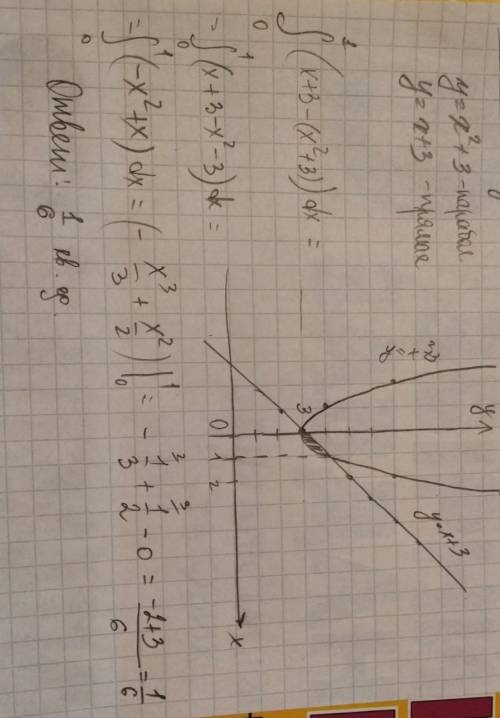 y=x²+3-парабол
y=x+3 -прямая
∫₀¹(x+3-(x²+3))dx=
=∫₀¹(x+3-x²-3)dx=
=∫₀¹(-x²+x)dx=(-x³/3+x²/2)|₀¹=-1/3+1/2-0=(-2+3)/6=1/6
Ответ: 1/6 кв. ед.
y
y=x+3
3
0
1
2
x